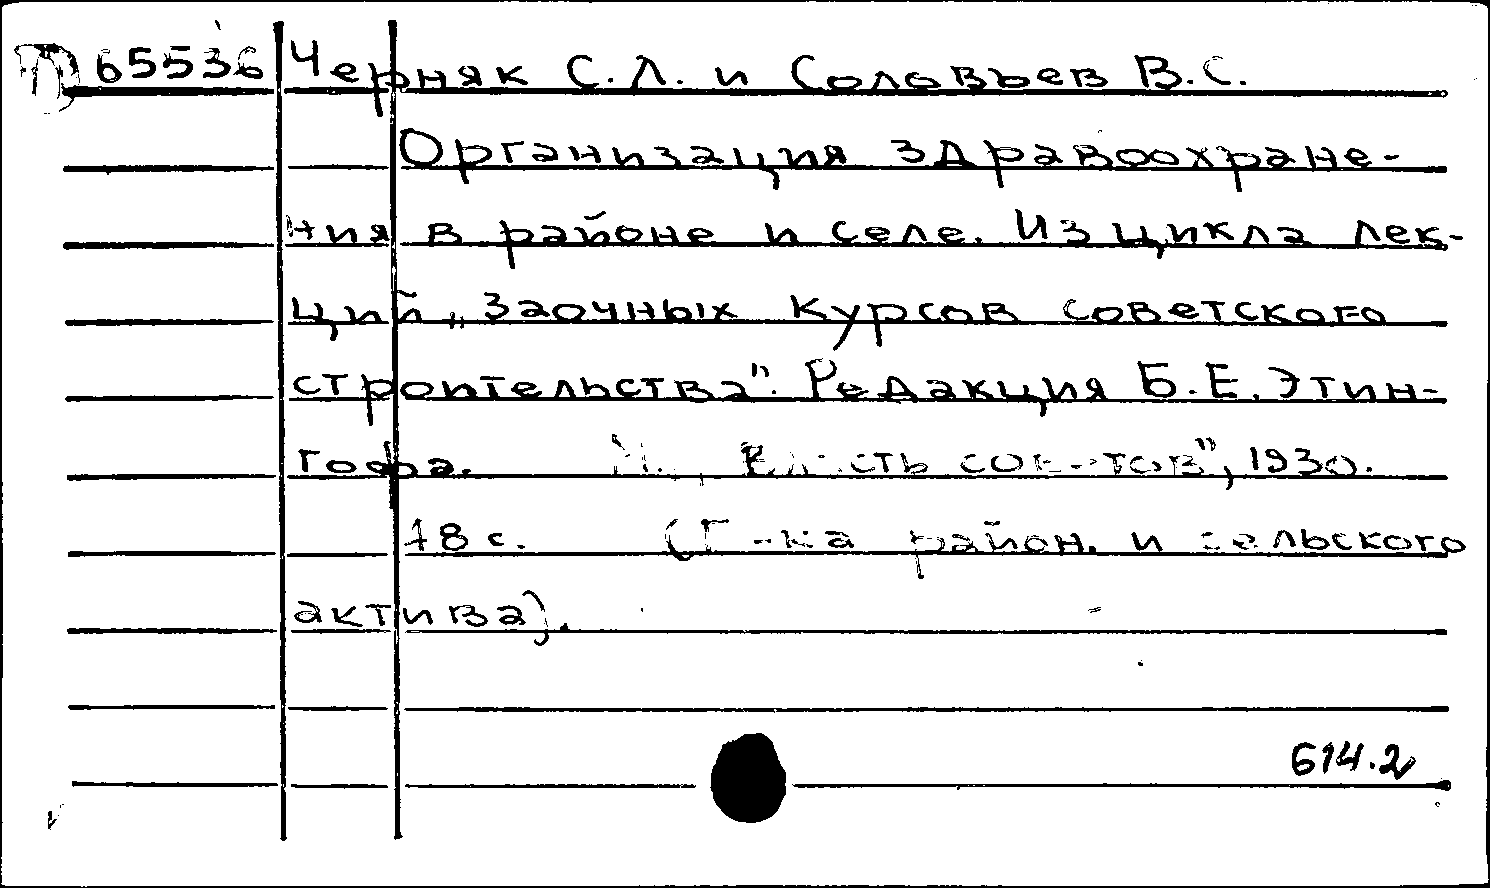 D 65536 Черняк С.Л. и Соловьев В.С.
Организация здравоохране-
ния в районе и селе. Из цикла лек-
ций „Заочных курсов советского
строительства". Редакция Б.Е. Этин-
гофа. М., Власть советов", 1930.
78 с. (Б-ка район. и сельского
актива).
614.2